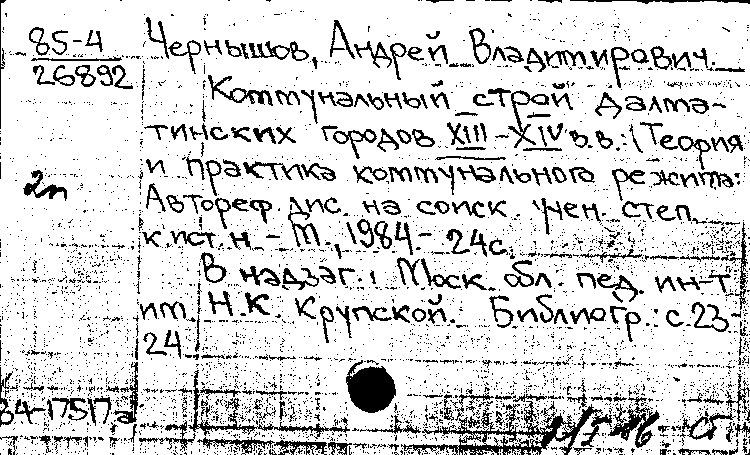 85-4
26892
Чернышов, Андрей Владимирович.
Коммунальный строй далма-
тинских городов XIII-XIV в.в.: (Теория
и практика коммунального режима:
2п
Автореф. дис. на соиск. учен. степ.
к. ист. н. - М., 1984. - 24 с.
В надзаг.: Моск. обл. пед. ин-т
им. Н.К. Крупской. Библиогр.: с. 23-
24
84-17517а